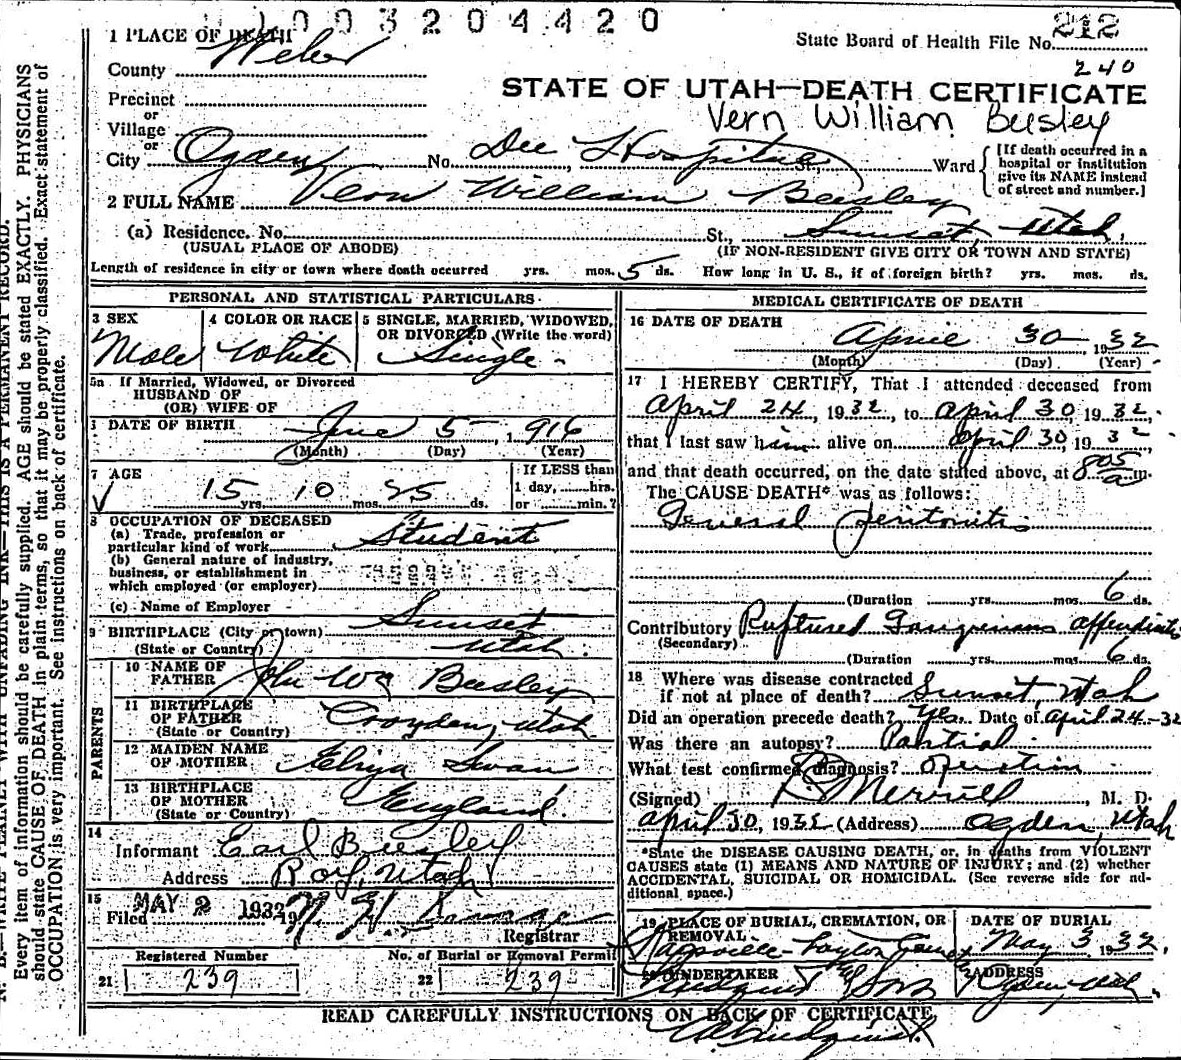 1003204420
1 PLACE OF DEATH
State Board of Health File No. 212
240
County Weber
STATE OF UTAH—DEATH CERTIFICATE
Precinct
or
Village
Vern William Beesley
or
City Ogden No. Dee Hospital St., Ward
[If death occurred in a
hospital or institution
give its NAME instead
of street and number.]
2 FULL NAME Vern William Beesley
(a) Residence. No. St., Sunset, Utah.
(USUAL PLACE OF ABODE) (IF NON-RESIDENT GIVE CITY OR TOWN AND STATE)
Length of residence in city or town where death occurred yrs. mos. 5 ds. How long in U. S., if of foreign birth? yrs. mos. ds.
PERSONAL AND STATISTICAL PARTICULARS
3 SEX
Male
4 COLOR OR RACE
White
5 SINGLE, MARRIED, WIDOWED,
OR DIVORCED (Write the word)
Single
5a If Married, Widowed, or Divorced
HUSBAND OF
(OR) WIFE OF
DATE OF BIRTH June 5 1916
(Month) (Day) (Year)
7 AGE
15 yrs. 10 mos. 25 ds.
If LESS than
1 day, hrs.
or min.?
8 OCCUPATION OF DECEASED
(a) Trade, profession or
particular kind of work Student
(b) General nature of industry,
business, or establishment in
which employed (or employer)
(c) Name of Employer
9 BIRTHPLACE (City or town) Sunset
(State or Country) Utah.
PARENTS
10 NAME OF
FATHER John Wm Beesley
11 BIRTHPLACE
OF FATHER
(State or Country) Croyden, Utah
12 MAIDEN NAME
OF MOTHER Eliza Swan
13 BIRTHPLACE
OF MOTHER
(State or Country) England.
14
Informant Earl Beesley
Address Roy, Utah
15
Filed MAY 2 1932 19
Registrar
Registered Number
21 239
No. of Burial or Removal Permit
22 239
MEDICAL CERTIFICATE OF DEATH
16 DATE OF DEATH
April 30 1932
(Month) (Day) (Year)
17 I HEREBY CERTIFY, That I attended deceased from
April 24, 1932, to April 30, 1932,
that I last saw him alive on April 30, 1932
and that death occurred, on the date stated above, at 8 05 a m.
The CAUSE DEATH* was as follows:
General Peritonitis
(Duration yrs. mos. 6 ds.
Contributory Ruptured Gangrenous appendicitis
(Secondary)
(Duration yrs. mos. 6 ds.
18 Where was disease contracted
if not at place of death? Sunset, Utah
Did an operation precede death? Yes. Date of April 24-32
Was there an autopsy? Partial
What test confirmed diagnosis? operation
(Signed) Merrill, M. D.
April 30, 1932 (Address) Ogden, Utah
*State the DISEASE CAUSING DEATH, or, in deaths from VIOLENT
CAUSES state (1) MEANS AND NATURE OF INJURY; and (2) whether
ACCIDENTAL, SUICIDAL OR HOMICIDAL. (See reverse side for ad-
ditional space.)
19 PLACE OF BURIAL, CREMATION, OR
REMOVAL
Kaysville-Layton Cemet
DATE OF BURIAL
May 3 1932.
20 UNDERTAKER
Lindquist & Sons
ADDRESS
Ogden, Utah.
READ CAREFULLY INSTRUCTIONS ON BACK OF CERTIFICATE.
Lindquist
N. B.—WRITE PLAINLY WITH UNFADING INK—THIS IS A PERMANENT RECORD.
Every item of information should be carefully supplied. AGE should be stated EXACTLY. PHYSICIANS
should state CAUSE OF DEATH in plain terms, so that it may be properly classified. Exact statement of
OCCUPATION is very important. See instructions on back of certificate.